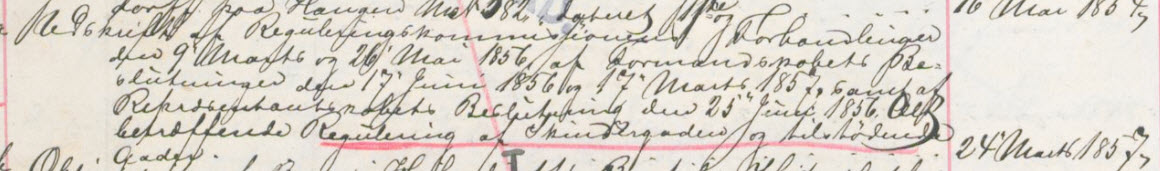 paa Haugen Mat 382, dateret 11te og 16 Mai 1857,
Nedskrift af Reguleringskommissionens Forhandlinger
den 9' Marts og 26' Mai 1856, af Formandskabets Be=
slutninger den 17' Juni 1856 og 17' Marts 1857, samt af
Repræsentantskabets Beslutning den 25' Juni 1856. Alt
betræffende Regulering af Skindergaden og tilstødende
Gader. 24' Marts 1857,